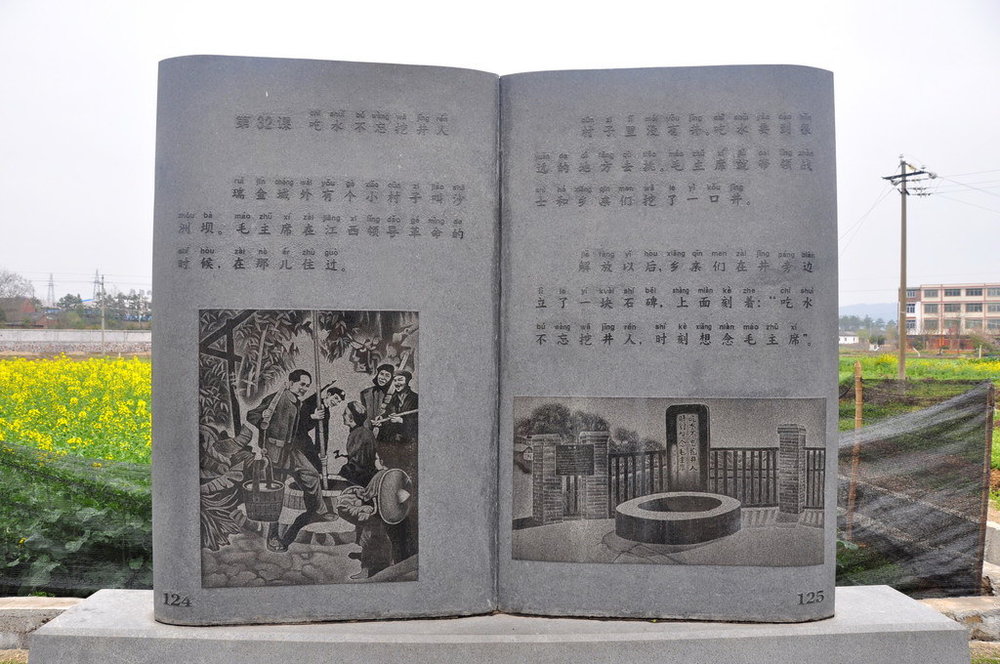 chī shuǐ bú wàng wā jǐng rén
第32课 吃水不忘挖井人
ruì jīn chéng wài yǒu gè xiǎo cūn zi jiào shā
瑞金城外有个小村子叫沙
zhōu bà máo zhǔ xí zài jiāng xī lǐng dǎo gé mìng de
洲坝。毛主席在江西领导革命的
shí hòu zài nà ér zhù guo
时候,在那儿住过。
124
cūn zi lǐ méi yǒu jǐng chī shuǐ yào dào hěn
村子里没有井,吃水要到很
yuǎn de dì fāng qù tiāo máo zhǔ xí jiù dài lǐng zhàn
远的地方去挑。毛主席就带领战
shì hé xiāng qīn men wā le yì kǒu jǐng
士和乡亲们挖了一口井。
jiě fàng yǐ hòu xiāng qīn men zài jǐng páng biān
解放以后,乡亲们在井旁边
lì le yí kuài shí bēi shàng miàn kè zhe chī shuǐ
立了一块石碑,上面刻着:“吃水
bú wàng wā jǐng rén shí kè xiǎng niàn máo zhǔ xí
不忘挖井人,时刻想念毛主席”。
吃水不忘挖井人
时刻想念毛主席
125